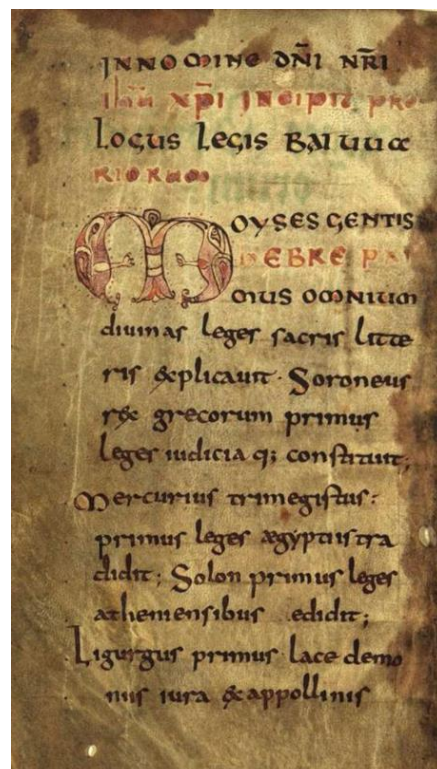 IN NOMINE DN̄I NR̄I
IHŪ XP̄I INCIPIT PRO
LOGUS LEGIS BAIUUA
RIORUM
MOYSES GENTIS
HEBRE PRI
MUS OMNIUM
diuinas leges sacris litte
ris explicauit · Soroneus
rex grecorum primus
leges iudicia q; constituit;
Mercurius trimegistus:
primus leges ægyptiis tra
didit; Solon primus leges
atheniensibus edidit;
Ligurgus primus lacedemo
niis iura & appollinis